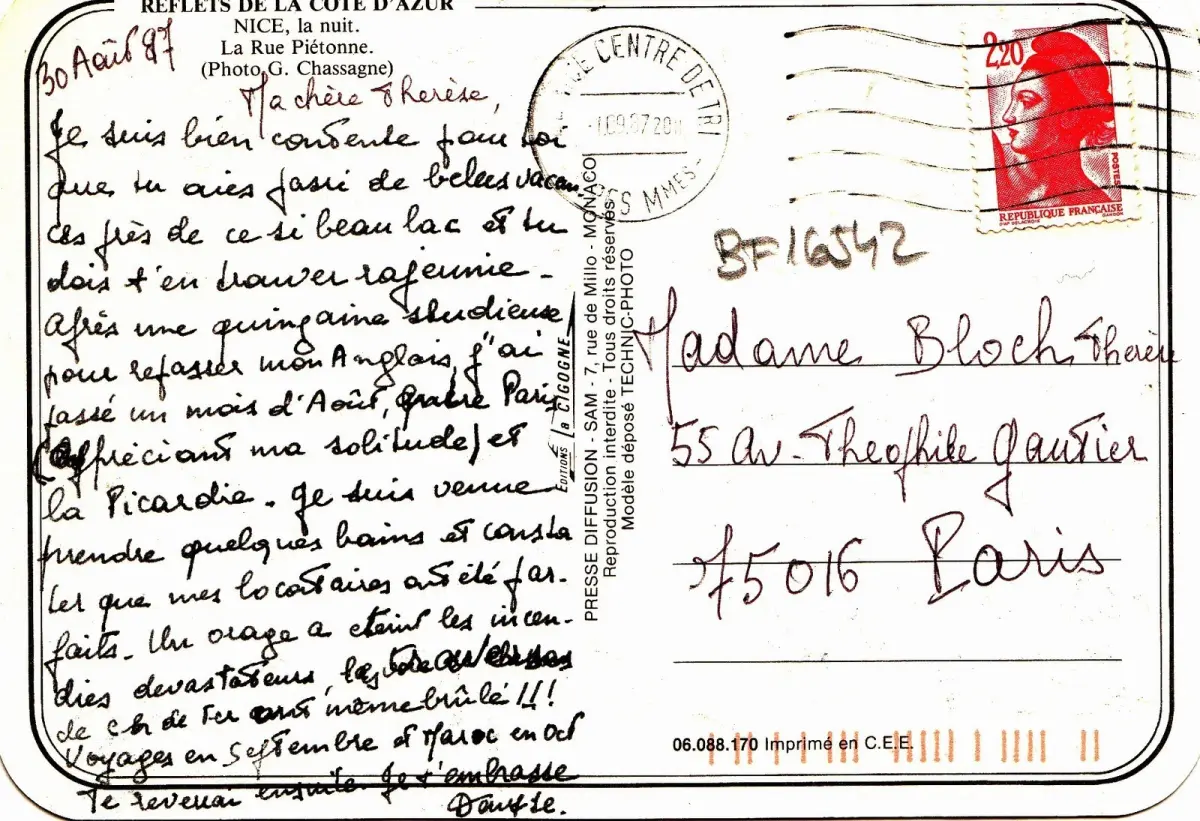 REFLETS DE LA COTE D'AZUR
NICE, la nuit.
La Rue Piétonne.
(Photo G. Chassagne)
30 Août 87
Ma chère Therèse,
Je suis bien contente pour toi
que tu aies passé de belles vacan-
ces près de ce si beau lac et tu
dois t'en trouver rajeunie -
Après une quinzaine studieuse
pour repasser mon Anglais, j'ai
passé un mois d'Août, Paris
(appréciant ma solitude) et
la Picardie. Je suis venue
prendre quelques bains et consta
ter que mes locataires ont été par-
faits. Un orage a eteint les incen-
dies devastateurs, les
de ch de fer ont même brûlé !!!
Voyages en Septembre et Maroc en Oct
Te reverrai ensuite. Je t'embrasse
Danyse.
EDITIONS la CIGOGNE
PRESSE DIFFUSION - SAM - 7, rue de Millo - MONACO
Reproduction interdite - Tous droits réservés
Modèle déposé TECHNIC-PHOTO
CENTRE DE TRI
1.09.87 20H
MMES
2,20
POSTES
REPUBLIQUE FRANÇAISE
BF16542
Madame Bloch Therèse
55 Av. Theophile Gautier
75016 Paris
06.088.170 Imprimé en C.E.E.